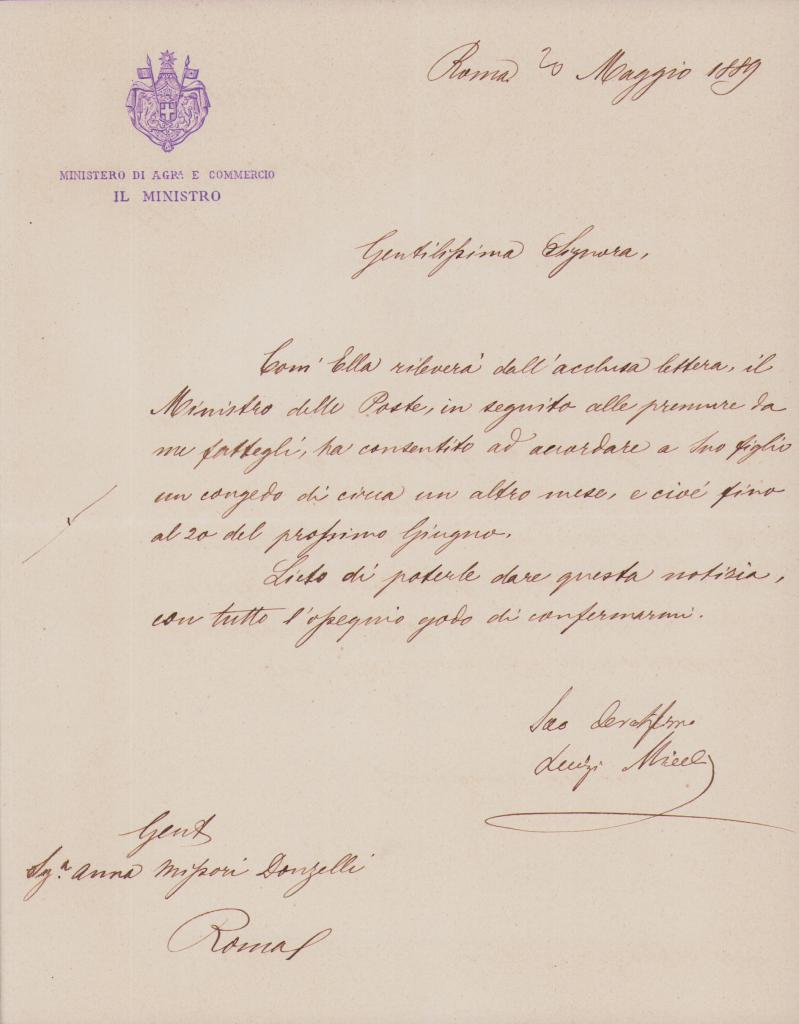 Roma 20 Maggio 1889
MINISTERO DI AGRA. E COMMERCIO
IL MINISTRO
Gentilissima Signora,
Com' Ella rileverà dall'acclusa lettera, il
Ministro delle Poste, in seguito alle premure da
me fattegli, ha consentito ad accordare a Suo figlio
un congedo di circa un altro mese, e cioè fino
al 20 del prossimo Giugno.
Lieto di poterle dare questa notizia,
con tutto l'ossequio godo di confermarmi.
Suo
Luigi Miceli
Gent
Sga. Anna Missori Donzelli
Roma